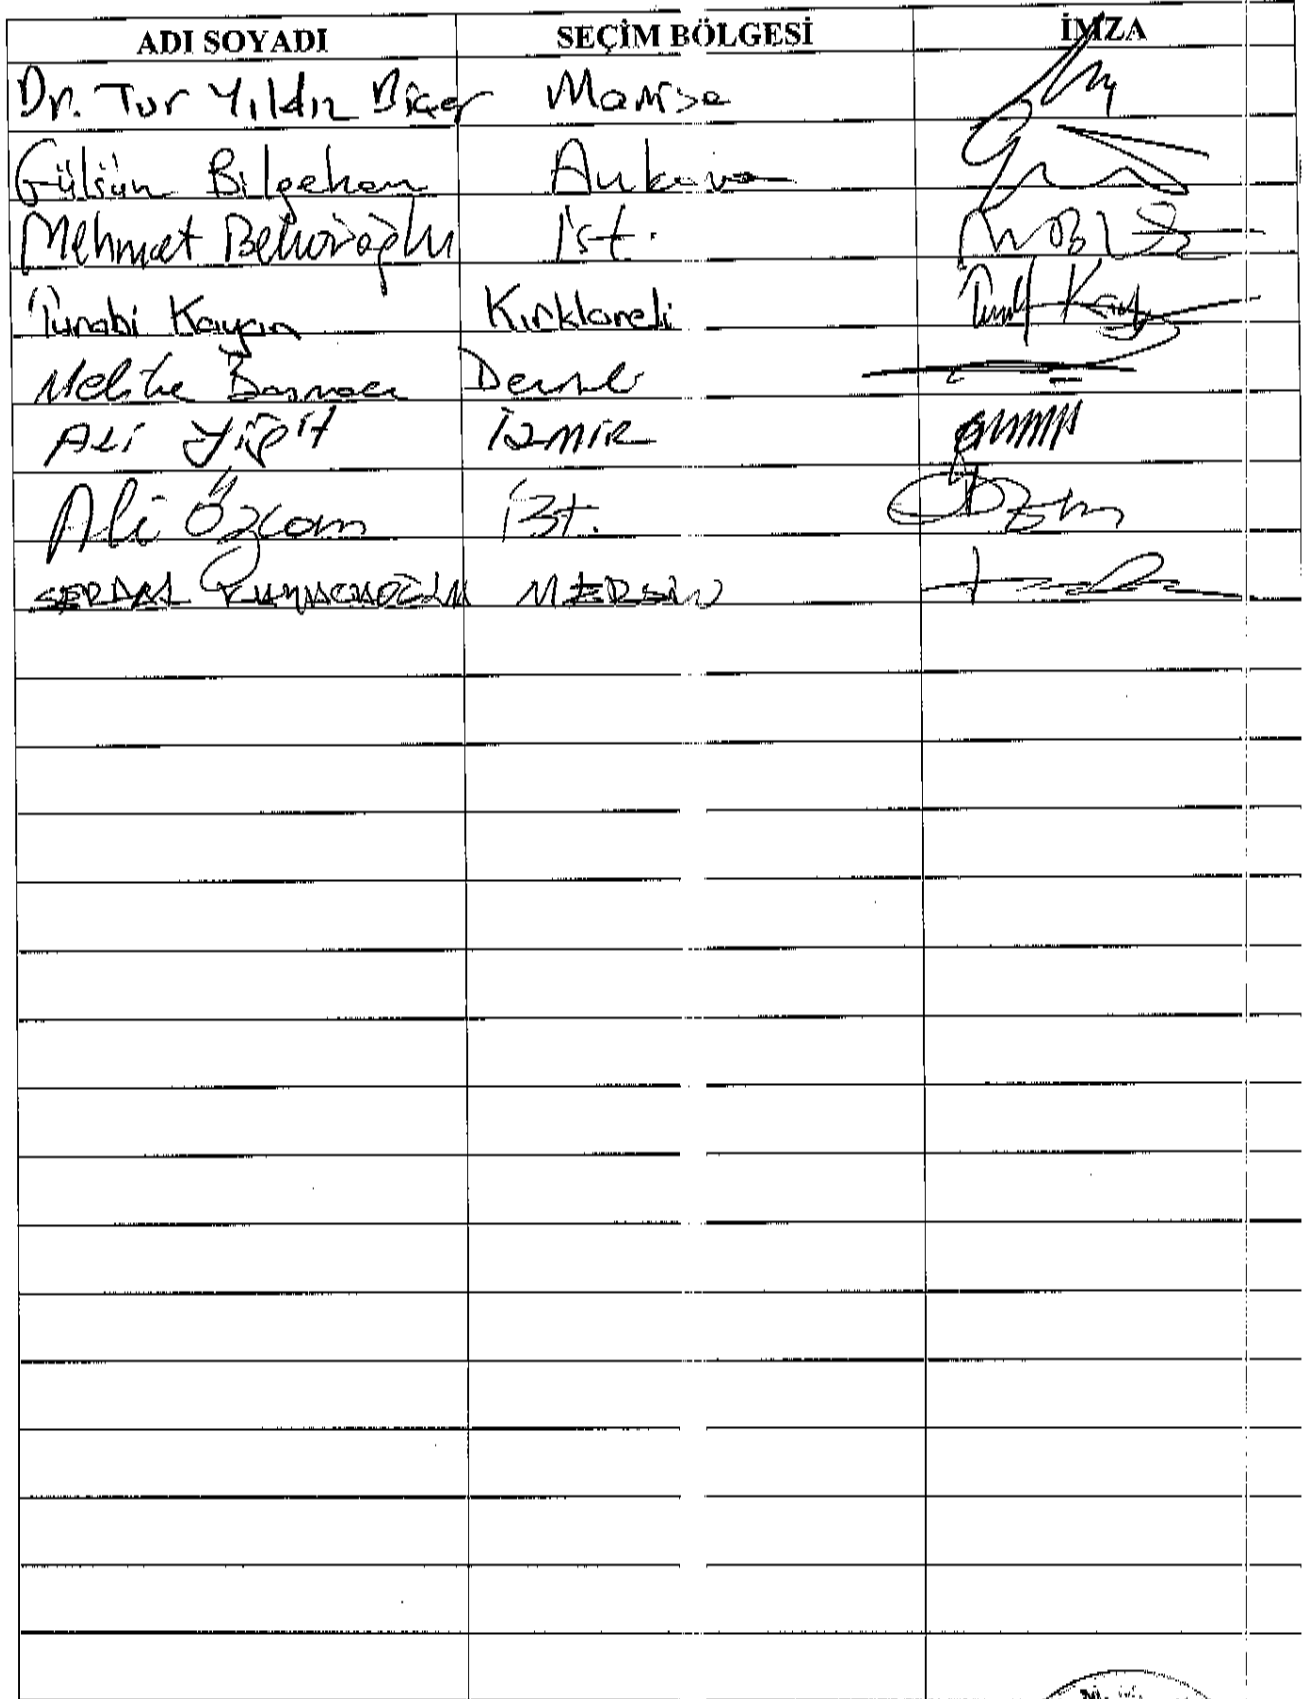 ADI SOYADI SEÇİM BÖLGESİ İMZA
Dr. Tur Yıldız Biçer Manisa
Gülsün Bilgehan Ankara
Mehmet Bekaroğlu İst.
Turabi Kayan Kırklareli
Melike Basmacı Denizli
Ali Yiğit İzmir
Ali Özcan İst.
SERDAL KUYUCUOĞLU MERSİN